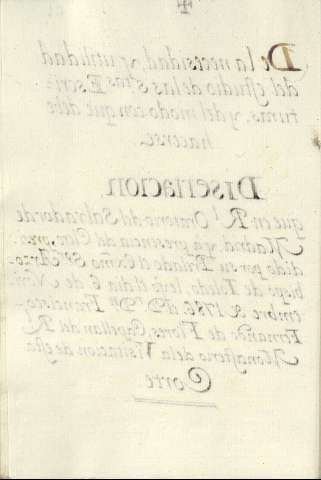 De la necesidad, y utilidad
del estudio de las Stas Escri-
turas, y del modo con que debe
hacerse.
Disertacion
que en el Rl Oratorio del Salvador de
Madrid, y a presencia del Clero, presi-
dido por su Prelado el Exmo Sr Arzo-
bispo de Toledo, leyó el dia 6 de Novi-
embre de 1786 Dn Francisco
Fernando de Flores, Capellan del Rl
Monasterio de la Visitacion de esta
Corte